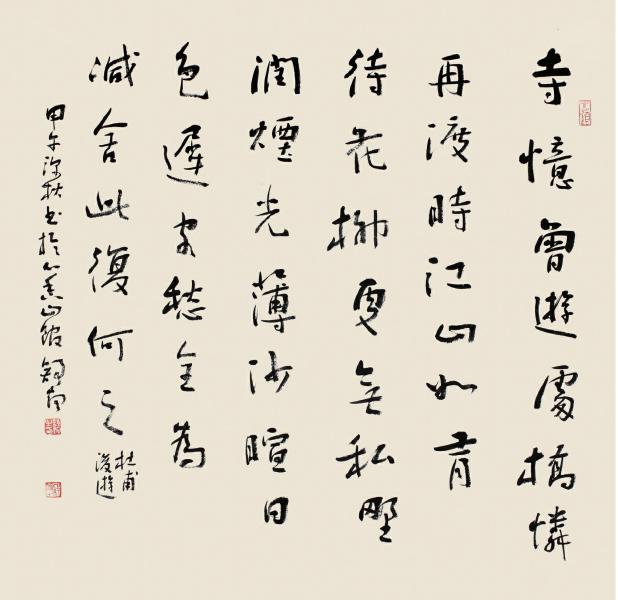 寺憶曾遊處橋憐
再渡時江山如有
待花柳更無私野
潤煙光薄沙暄日
色遲客愁全為
減舍此復何之
杜甫
後遊
甲午深秋书於山館